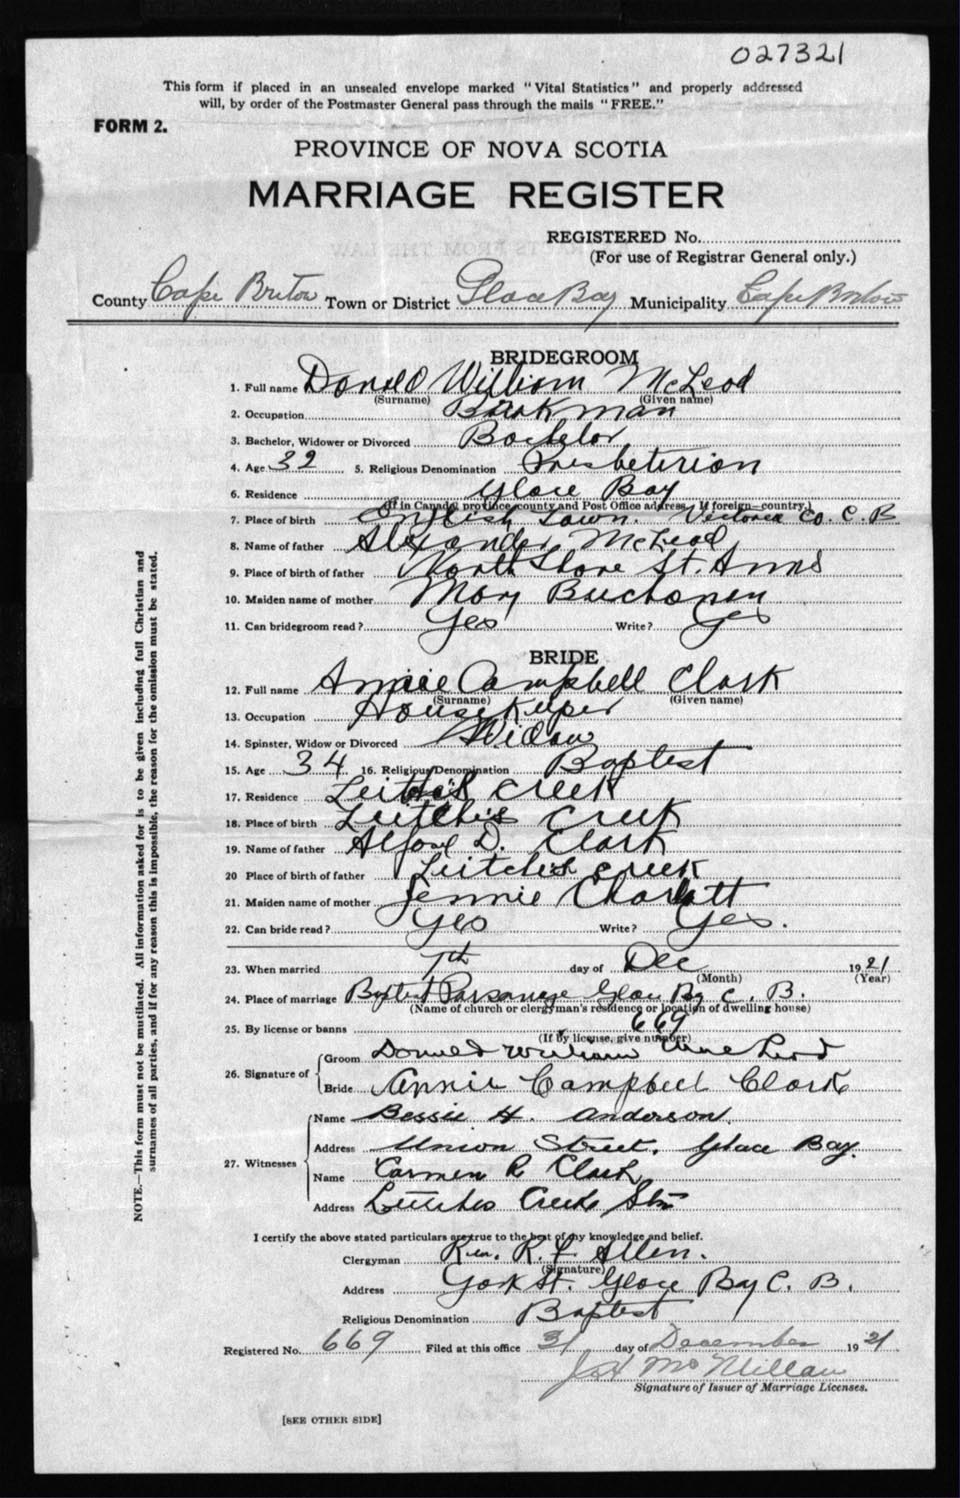 027321
This form if placed in an unsealed envelope marked "Vital Statistics" and properly addressed
will, by order of the Postmaster General pass through the mails "FREE."
FORM 2.
PROVINCE OF NOVA SCOTIA
MARRIAGE REGISTER
REGISTERED No.
(For use of Registrar General only.)
County Cape Breton Town or District Glace Bay Municipality Cape Breton
BRIDEGROOM
1. Full name Donald William McLeod
(Surname) (Given name)
2. Occupation
3. Bachelor, Widower or Divorced Bachelor
4. Age 32 5. Religious Denomination Presbeterian
6. Residence Glace Bay
(If in Canada, province, county and Post Office address. If foreign—country.)
7. Place of birth English Town. Victoria Co. C. B
8. Name of father Alexander McLeod
9. Place of birth of father North Shore St. Anns
10. Maiden name of mother Mary Buchanan
11. Can bridegroom read? Yes Write? Yes
BRIDE
12. Full name Annie Campbell Clark
(Surname) (Given name)
13. Occupation Housekeeper
14. Spinster, Widow or Divorced Widow
15. Age 34 16. Religious Denomination Baptist
17. Residence Leitches Creek
18. Place of birth Leitches Creek
19. Name of father D. Clark
20 Place of birth of father Leitches Creek
21. Maiden name of mother Jennie Charlott
22. Can bride read? Yes Write? Yes.
23. When married 7th day of Dec 1921
(Month) (Year)
24. Place of marriage Baptist Parsonage Glace Bay C. B.
(Name of church or clergyman's residence or location of dwelling house)
25. By license or banns 669
(If by license, give number)
26. Signature of
Groom Donald William McLeod
Bride Annie Campbell Clark
27. Witnesses
Name Bessie H. Anderson.
Address Union Street, Glace Bay.
Name Carmen R Clark
Address Leitches Creek Stn
I certify the above stated particulars are true to the best of my knowledge and belief.
Clergyman Rev. R. Allen.
(Signature)
Address York St. Glace Bay C. B.
Religious Denomination Baptist
Registered No. 669 Filed at this office 31 day of December 1921
McMillan
Signature of Issuer of Marriage Licenses.
[SEE OTHER SIDE]
NOTE.—This form must not be mutilated. All information asked for is to be given including full Christian and
surnames of all parties, and if for any reason this is impossible, the reason for the omission must be stated.